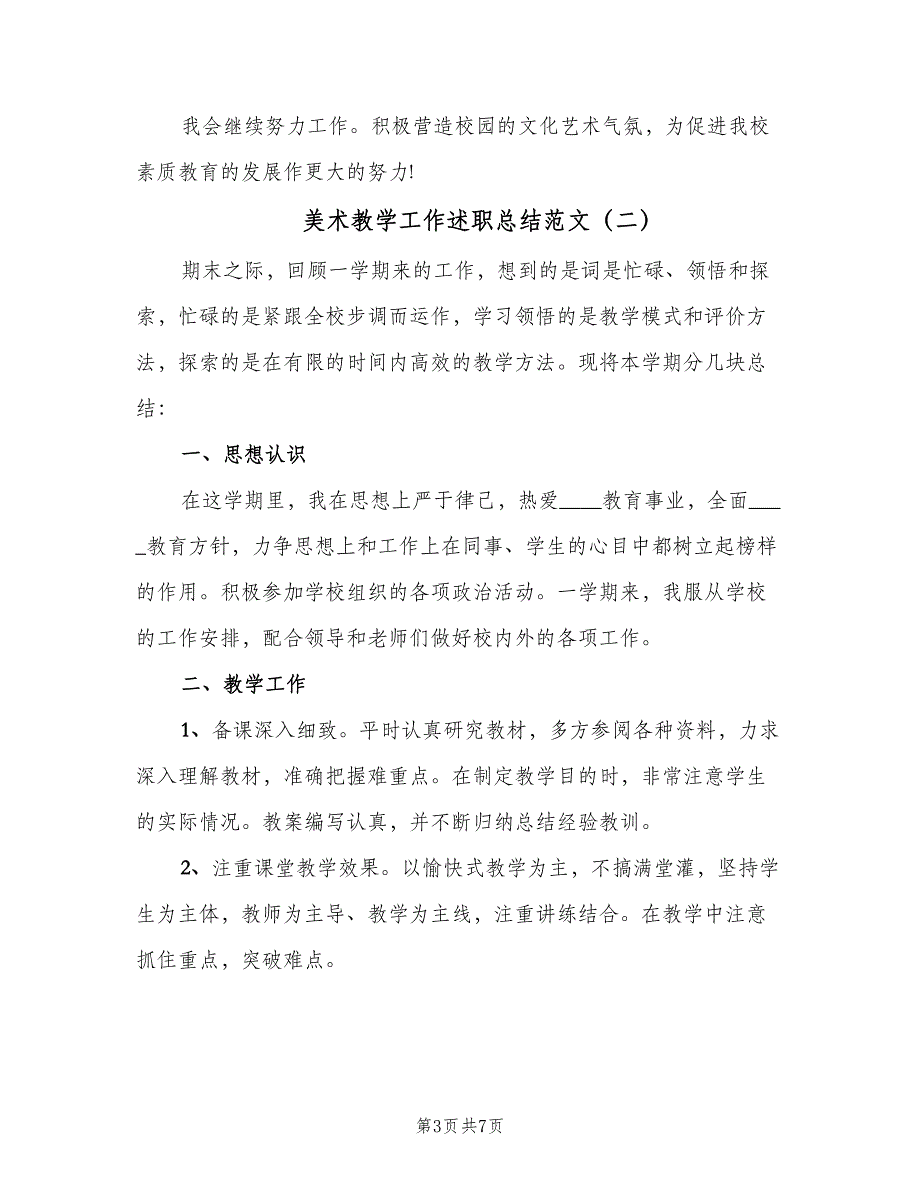 我会继续努力工作。积极营造校园的文化艺术气氛，为促进我校
素质教育的发展作更大的努力!
美术教学工作述职总结范文（二）
期末之际，回顾一学期来的工作，想到的是词是忙碌、领悟和探
索，忙碌的是紧跟全校步调而运作，学习领悟的是教学模式和评价方
法，探索的是在有限的时间内高效的教学方法。现将本学期分几块总
结：
一、思想认识
在这学期里，我在思想上严于律己，热爱____教育事业，全面___
_教育方针，力争思想上和工作上在同事、学生的心目中都树立起榜样
的作用。积极参加学校组织的各项政治活动。一学期来，我服从学校
的工作安排，配合领导和老师们做好校内外的各项工作。
二、教学工作
1、备课深入细致。平时认真研究教材，多方参阅各种资料，力求
深入理解教材，准确把握难重点。在制定教学目的时，非常注意学生
的实际情况。教案编写认真，并不断归纳总结经验教训。
2、注重课堂教学效果。以愉快式教学为主，不搞满堂灌，坚持学
生为主体，教师为主导、教学为主线，注重讲练结合。在教学中注意
抓住重点，突破难点。
第3页共7页